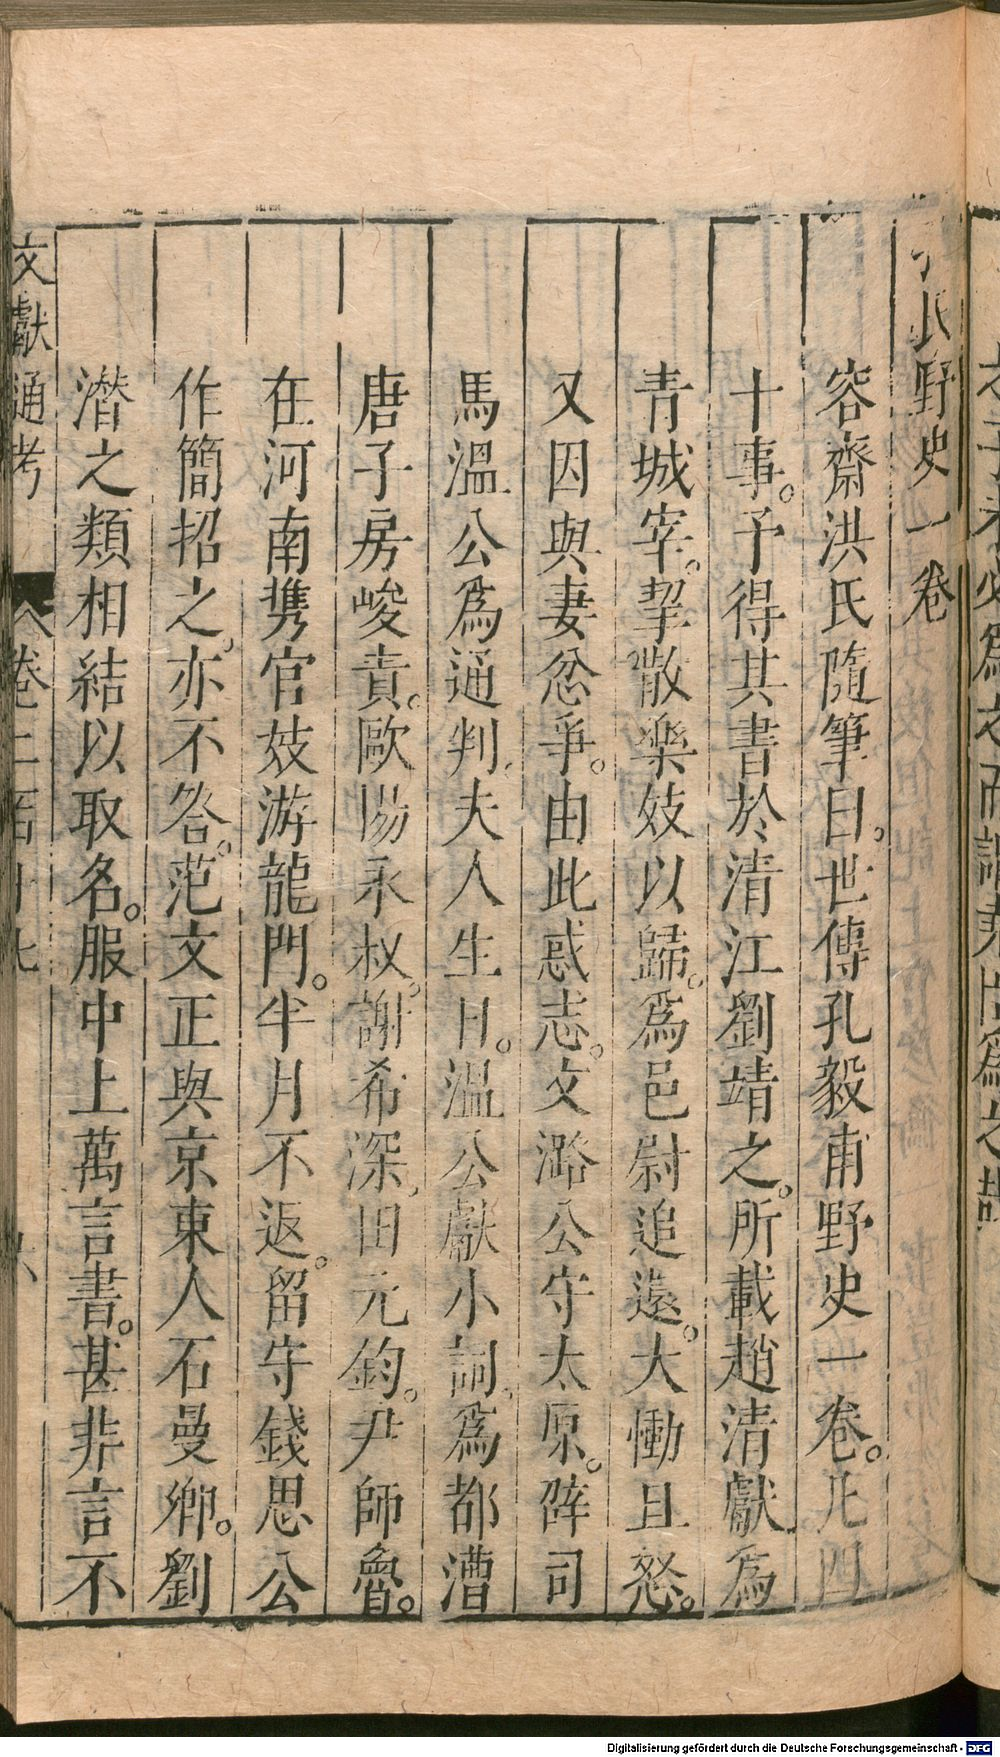 孔氏野史一卷
容齋洪氏隨筆曰世傳孔毅甫野史一卷。凡四
十事。予得其書於清江劉靖之。所載趙清獻爲
青城宰。挈散樂妓以歸。爲邑尉追還。大慟且怒。
又因與妻忿爭。由此惑志。文潞公守太原。辟司
馬溫公爲通判。夫人生日。溫公獻小詞。爲都漕
唐子房峻責。歐陽永叔。謝希深。田元鈞。尹師魯。
在河南携官妓游龍門。半月不返。留守錢思公
作簡招之。亦不答。范文正與京東人石曼卿。劉
潛之類相結以取名。服中上萬言書。甚非言不
文獻通考 卷二百十七
Digitalisierung gefördert durch die Deutsche Forschungsgemeinschaft - DFG